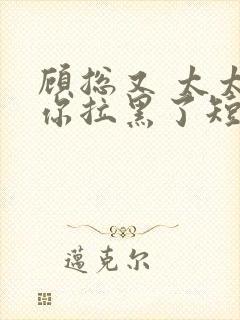 顾总又 太太
你拉黑了短
邁克尔